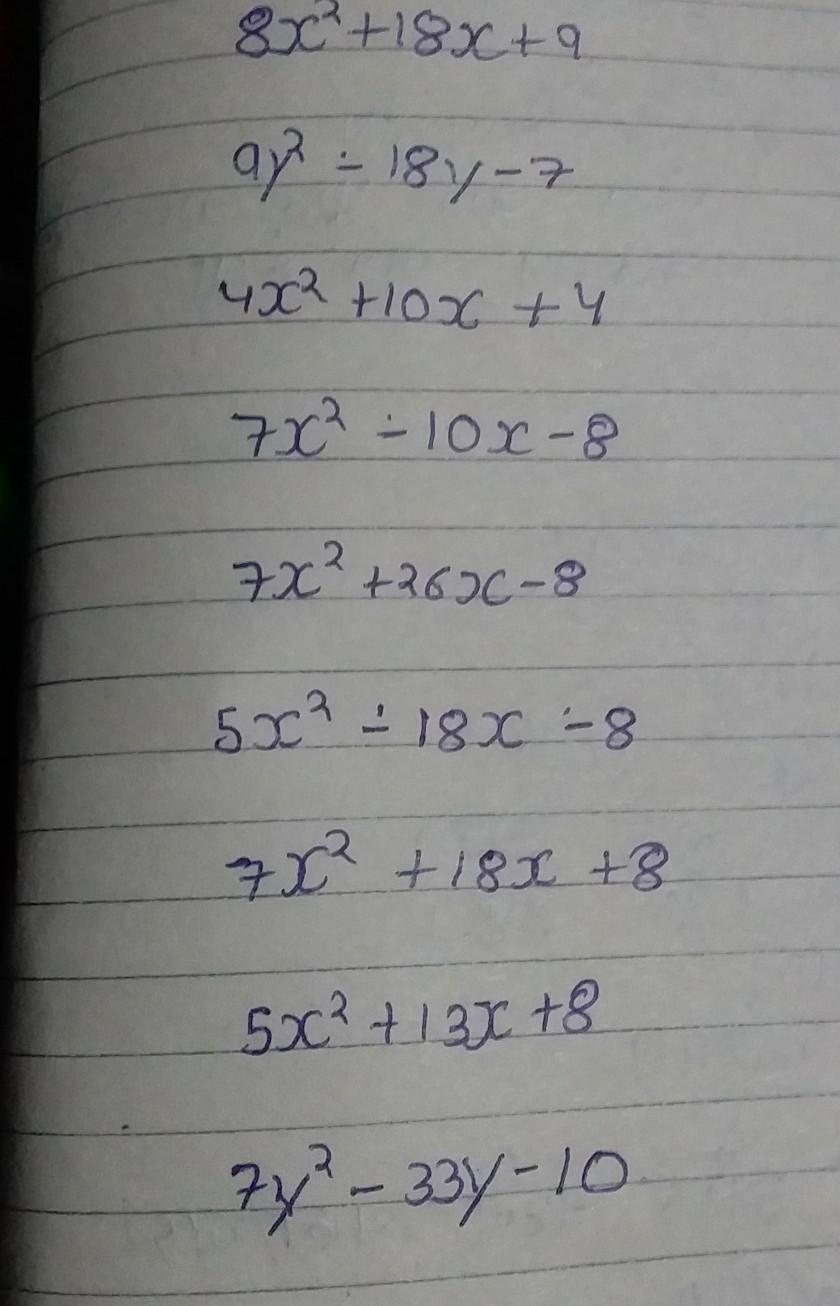 8x² + 18x + 9
9y² ∸ 18y - 7
4x² + 10x + 4
7x² ∸ 10x - 8
7x² + 26x - 8
5x² ∸ 18x ∸ 8
7x² + 18x + 8
5x² + 13x + 8
7y² - 33y - 10